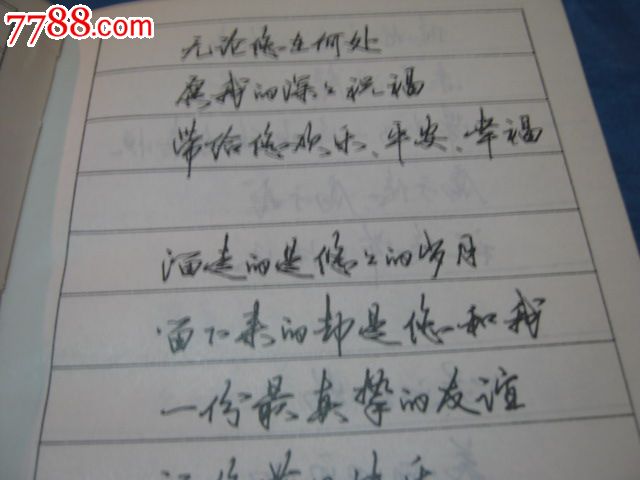 7788.com
无论您在何处
愿我的深深祝福
带给您欢乐、平安、幸福
洒走的是悠悠的岁月
留下来的却是您和我
一份最真挚的友谊